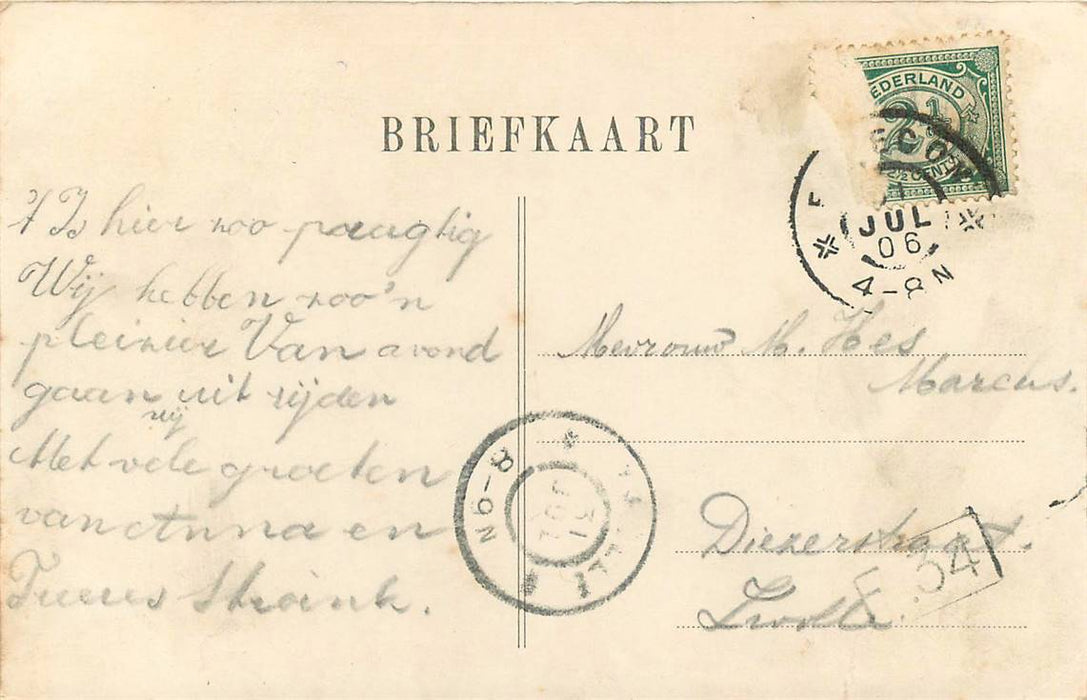 BRIEFKAART
NEDERLAND
2½
2½ CENT
JUL
06
4-8N
't Is hier zoo praagtig
Wij hebben zoo'n
pleizier Van avond
gaan uit rijden
wij
Met vele groeten
van Anna en
Stroink.
Mevrouw M. Hes
Marcus.
Diezerstraat.
Zwolle.
F.34
8-9N